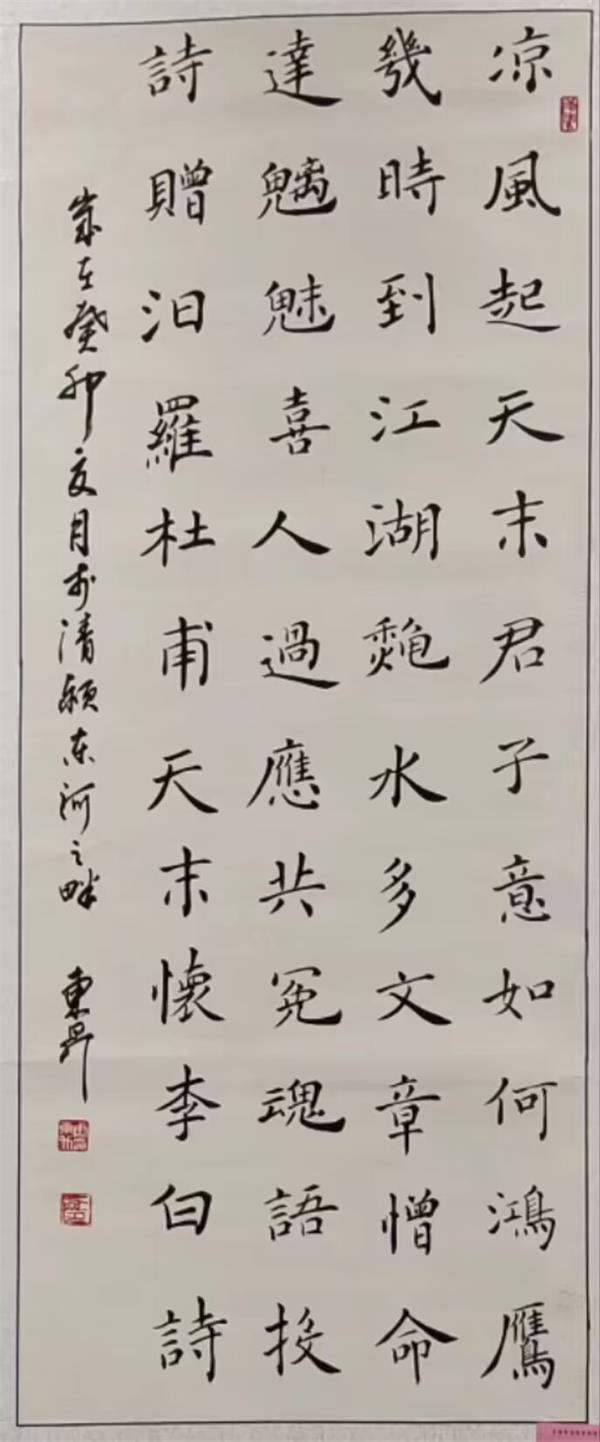 凉風起天末君子意如何鴻鷹
幾時到江湖龝水多文章憎命
達魑魅喜人過應共冤魂語投
詩贈汨羅杜甫天末懷李白詩
歲在癸卯夏月於清潁东河之畔 東昇